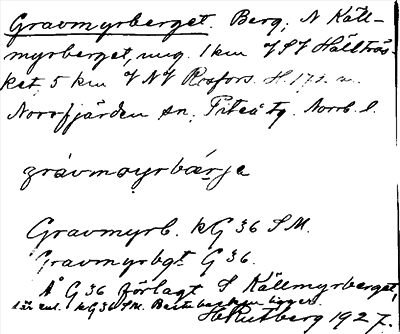 Gravmyrberget. Berg, N Käll-
myrberget, ung. 1 km VSV Hällträs-
ket, 5 km VNV Rosfors. H. 172 m.
Norrfjärden sn, Piteå tg. Norrb. l.
gràvmoyrbær̀je
Gravmyrb. kG 36 SM.
Gravmyrbgt G 36.
Å G 36 förlagt S Källmyrberget,
kG 36 SM.
H Rutberg 1927.